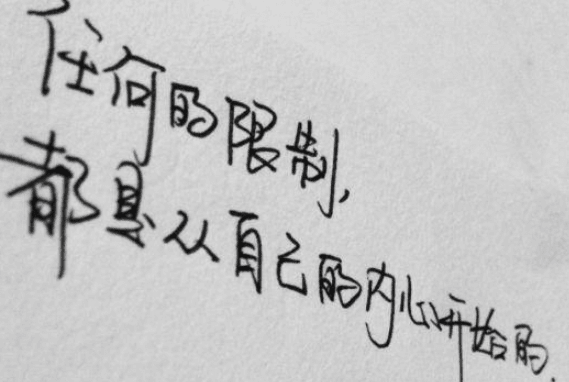 任何的限制,
都是从自己的内心开始的.